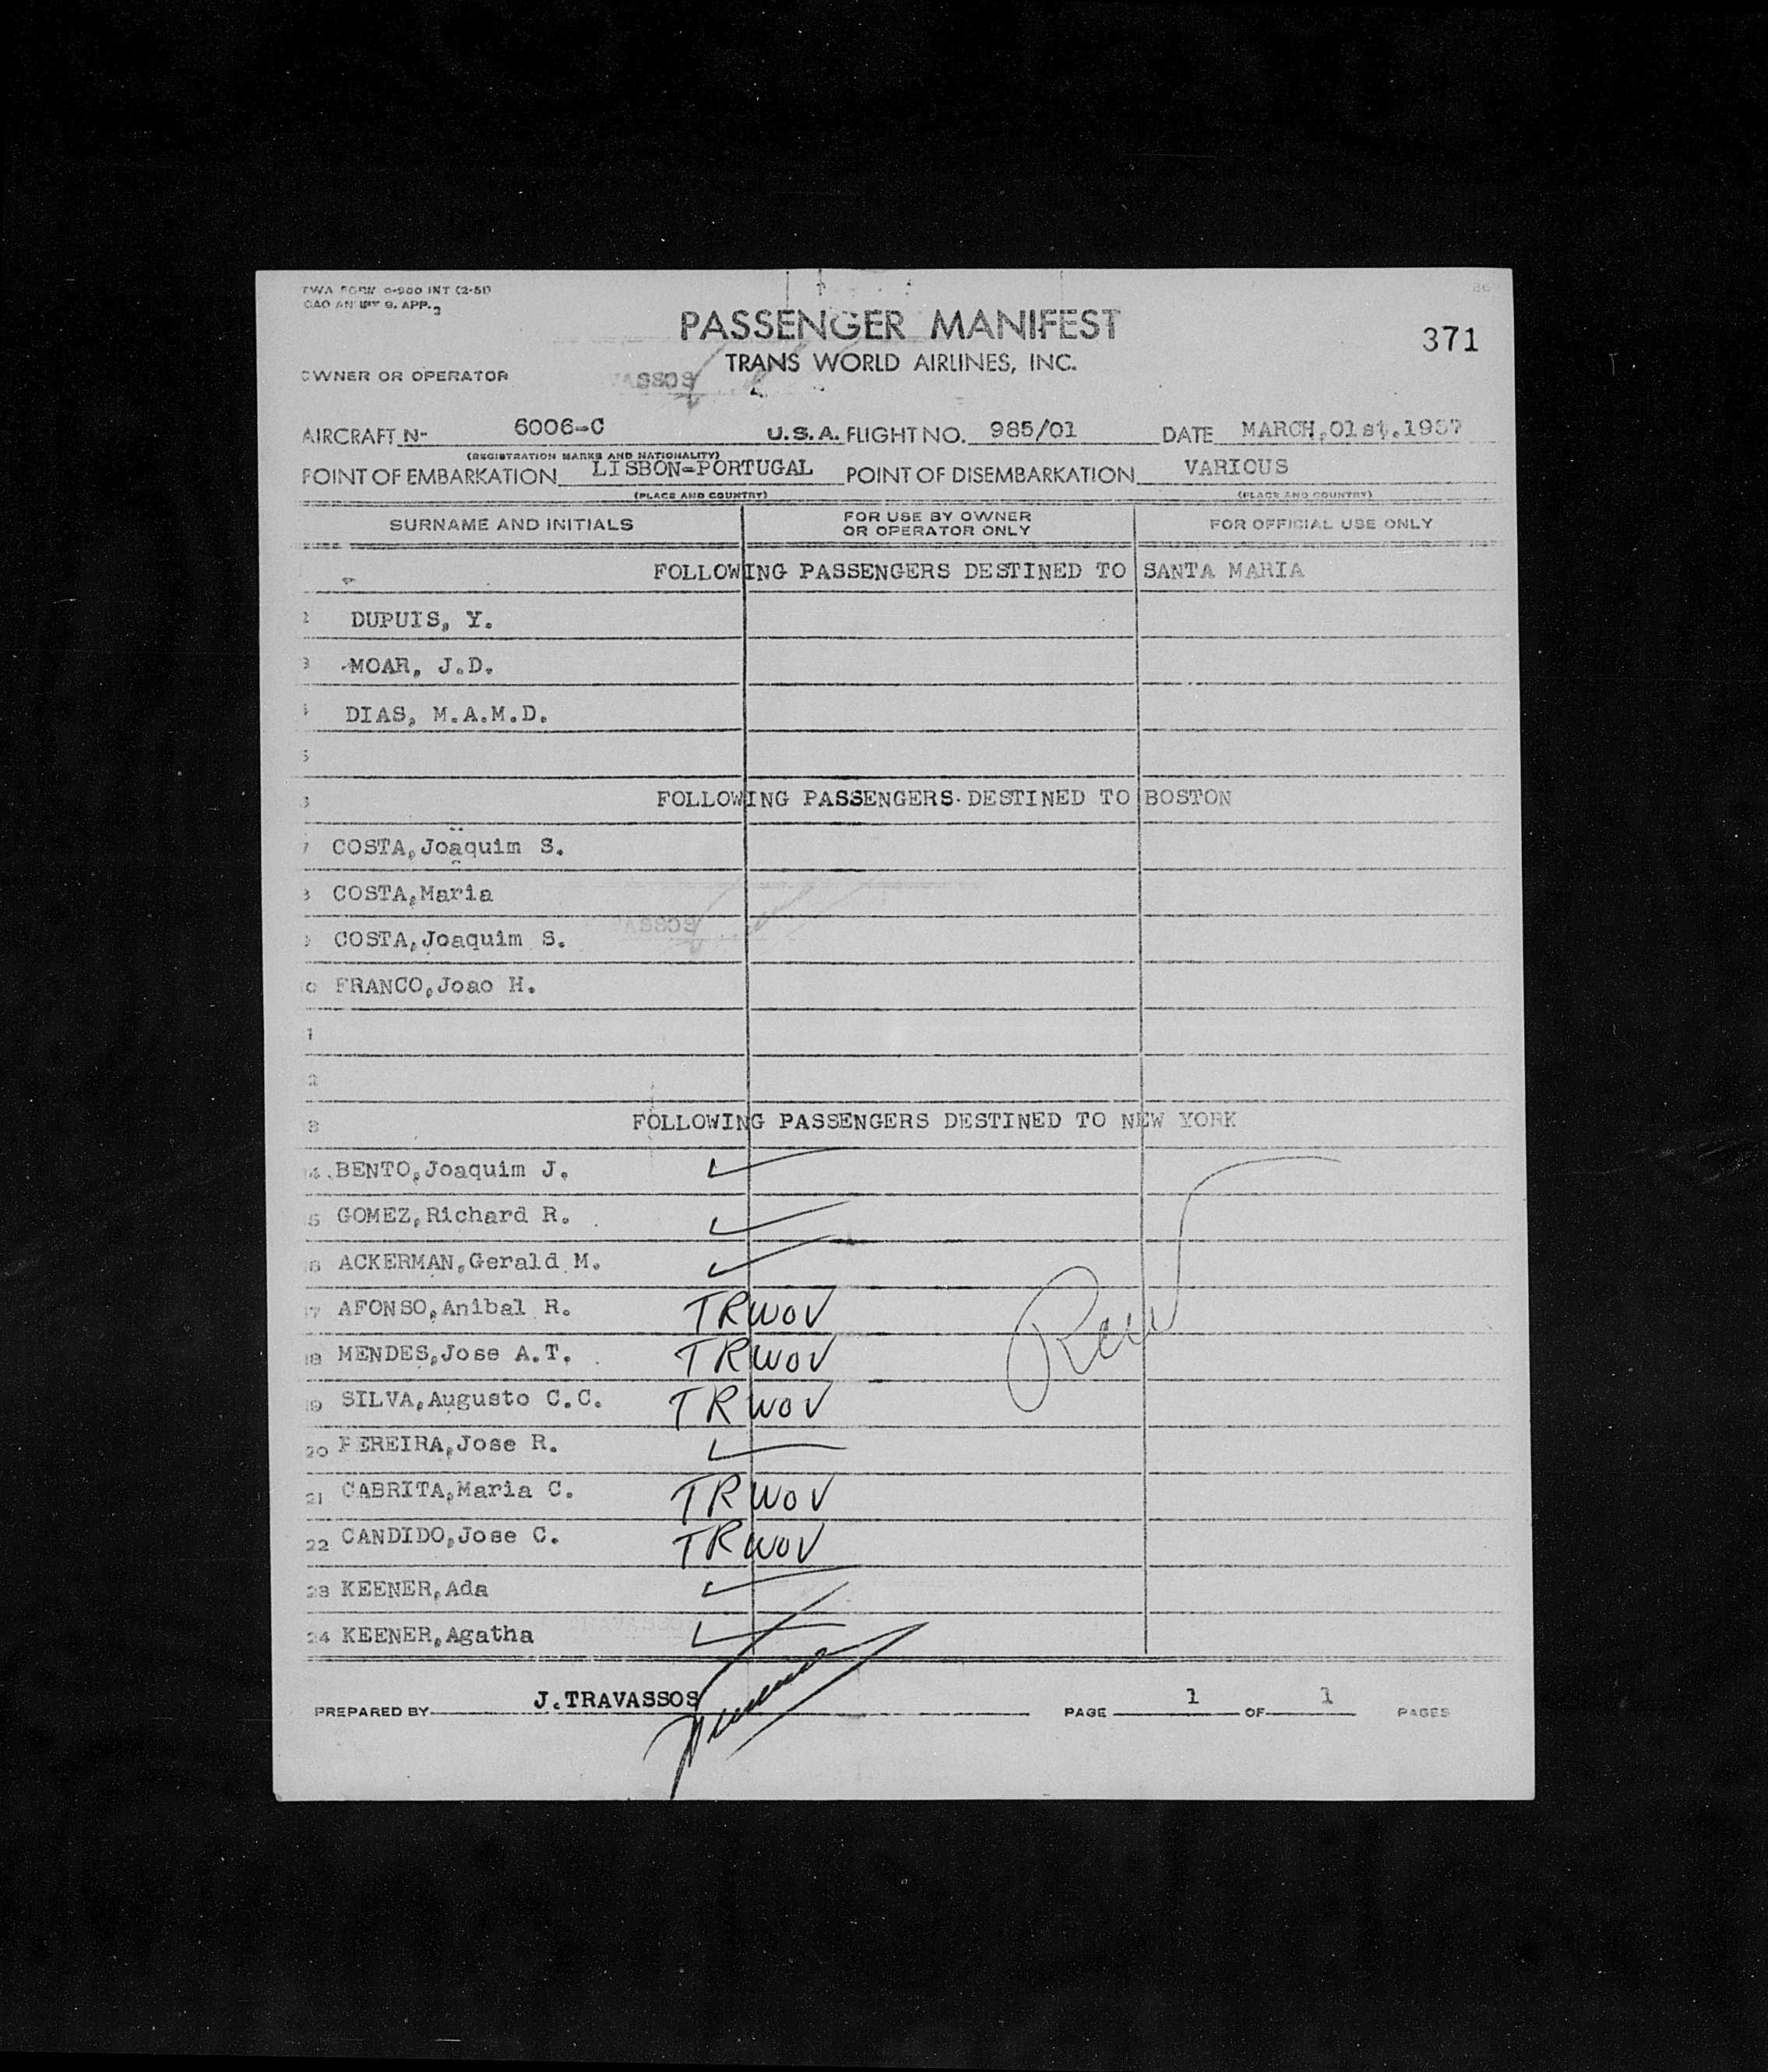 TWA FORM O-900 INT (2-51)
ICAO ANNEX 9. APP. 3
PASSENGER MANIFEST
371
TRANS WORLD AIRLINES, INC.
OWNER OR OPERATOR
AIRCRAFT N- 6006-C U.S.A. FLIGHT NO. 985/01 DATE MARCH,01st.1957
(REGISTRATION MARKS AND NATIONALITY)
POINT OF EMBARKATION LISBON-PORTUGAL POINT OF DISEMBARKATION VARIOUS
(PLACE AND COUNTRY) (PLACE AND COUNTRY)
SURNAME AND INITIALS FOR USE BY OWNER OR OPERATOR ONLY FOR OFFICIAL USE ONLY
FOLLOWING PASSENGERS DESTINED TO SANTA MARIA
2 DUPUIS, Y.
3 MOAR, J.D.
4 DIAS, M.A.M.D.
5
6 FOLLOWING PASSENGERS DESTINED TO BOSTON
7 COSTA,Joaquim S.
8 COSTA,Maria
9 COSTA,Joaquim S.
10 FRANCO,Joao H.
1
2
3 FOLLOWING PASSENGERS DESTINED TO NEW YORK
14 BENTO,Joaquim J.
15 GOMEZ,Richard R.
16 ACKERMAN,Gerald M.
17 AFONSO,Anibal R. TRWOV
18 MENDES,Jose A.T. TRWOV
19 SILVA,Augusto C.C. TRWOV
20 PEREIRA,Jose R.
21 CABRITA,Maria C. TRWOV
22 CANDIDO,Jose C. TRWOV
23 KEENER,Ada
24 KEENER,Agatha
PREPARED BY J.TRAVASSOS PAGE 1 OF 1 PAGES